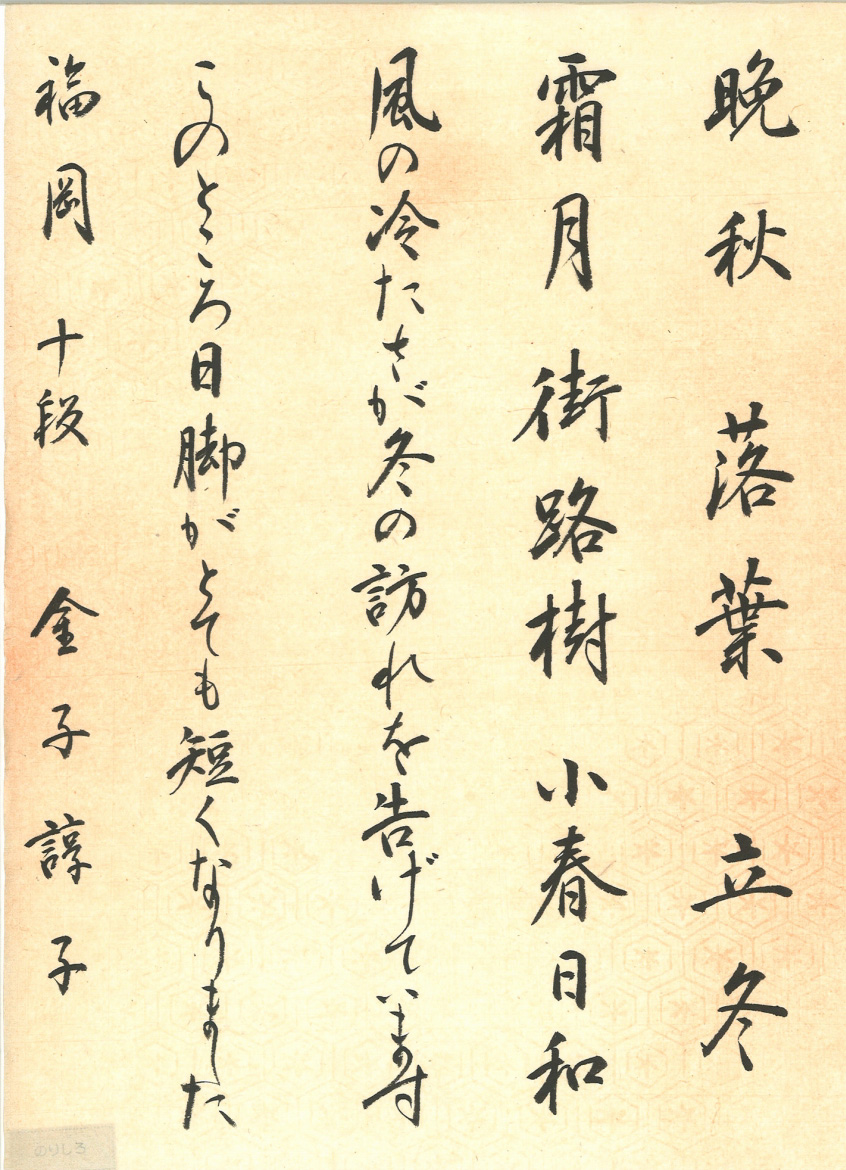 晩秋 落葉 立冬
霜月 街路樹 小春日和
風の冷たさが冬の訪れを告げています
このところ日脚がとても短くなりました
福岡 十段 金子諄子
のりしろ